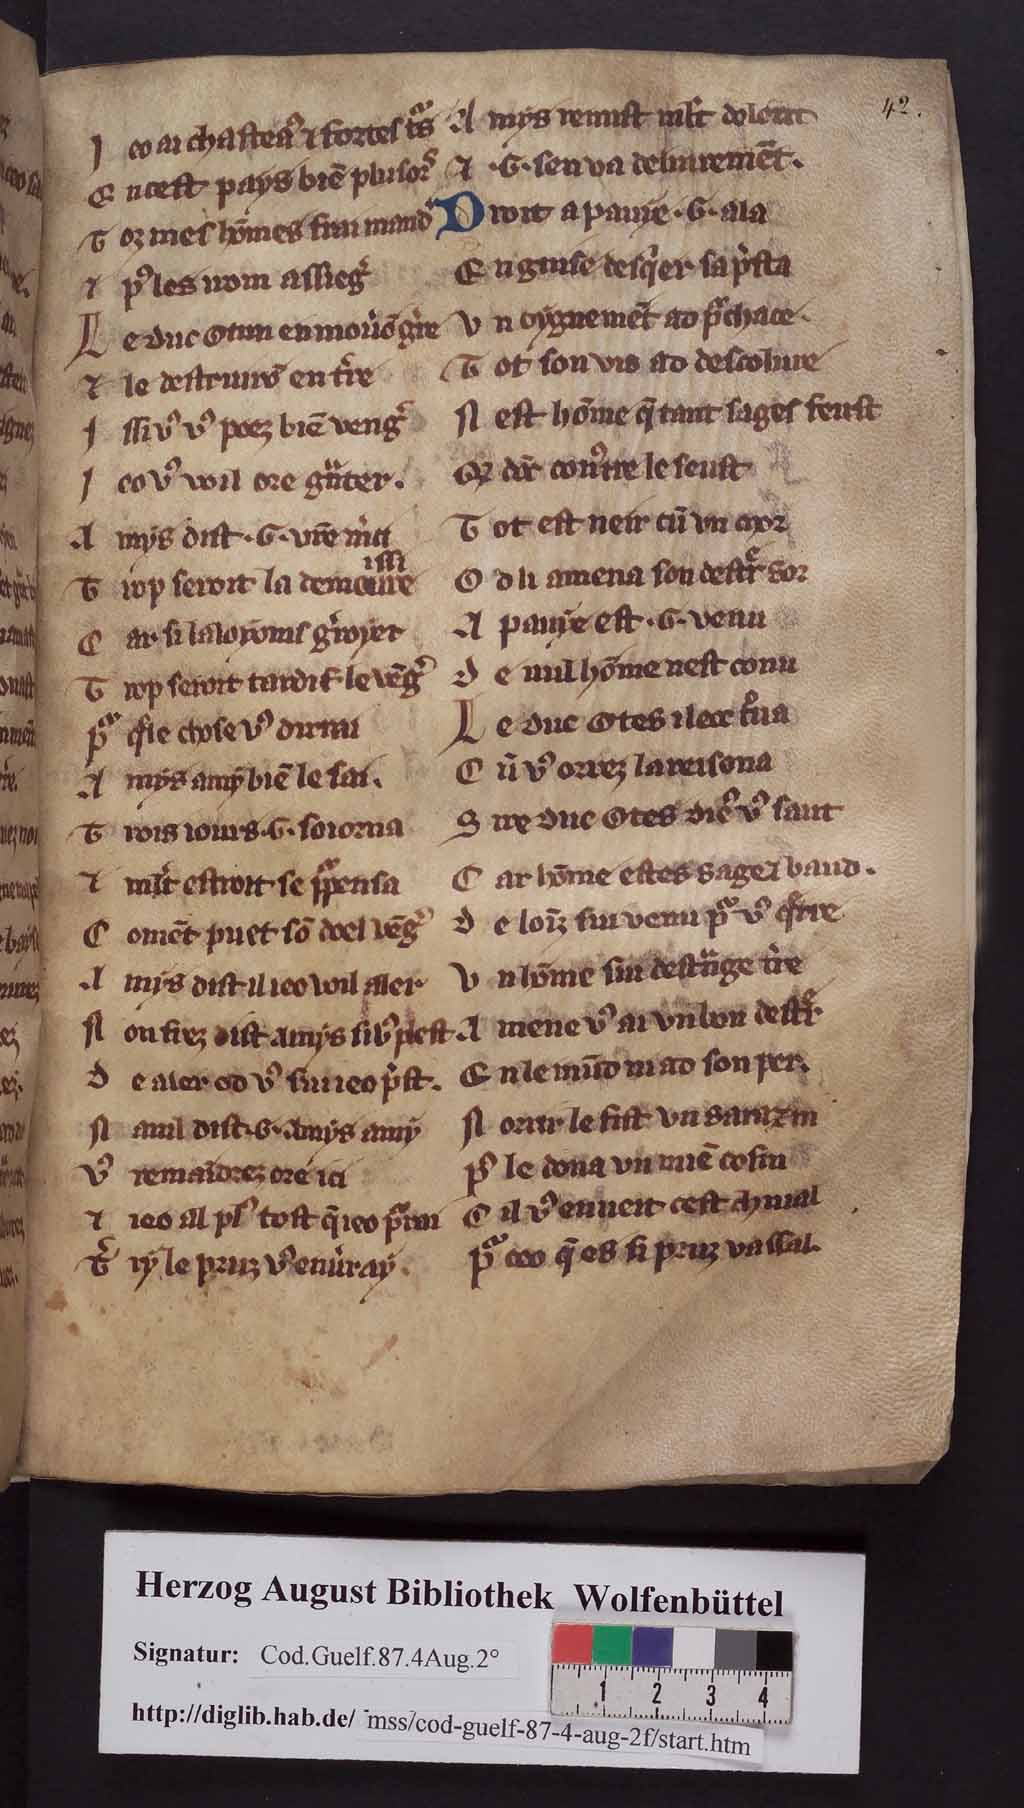 42.
I co ai chasteaꝰ ⁊ fortes t͛s
E n cest pays biē plusorꝰ
T oz mes hōmes frai mandꝰ
⁊ pꝰ les nom assieg͛
L e duc Otun en mou͛ō g͛re
⁊ le destruirō en t͛re
I ssi vꝰ vꝰ poez biē veng͛
I co vꝰ voil ore g͛nter.
A mys dist .G. vr̄e m͛ci
T rop seroit la demoure
issi
C ar si la looyoms g͛royer
T rop seroit tardif le vēg͛
pᵃ q̄le chose vꝰ durrai
A mys amy biē le sai.
T rois iours .G. soiorna
⁊ ml̄t estroit se pᵃpensa
C omēt puet sō doel vēg͛
A mys dist il ieo voil aler
N on frez dist Amys si vꝰ plest
D e aler od vꝰ sui ieo p͛st.
N anil dist .G. Amys amy
Vꝰ remaīdrez ore ici
⁊ ieo al plꝰ tost q̄ ieo pᵃrai
T͛ ry le pruz vꝰ enu͛ray.
A mys remist ml̄t dolent
⁊ .G. sen va deliuremēt.
D roit a pauye .G. ala
E n guise desq͛er sa p͛sta
V n oygnemēt ad pᵃchace.
T ot son vis ad descolure
N est hōme q̄ tant sages feust
Q d͛r con͛tre le seust
T ot est neir cū vn mor
O d li amena son destr͛ sor
A pauye est .G. venu
D e nul hōme nest conu
L e duc Otes ilec t͛ua
C ū vꝰ orrez la reisona
S ire duc Otes dieꝰ vꝰ saut
C ar hōme estes sage ⁊ baud.
D e loīz sui venu pᵃ vꝰ q̄rre
V n hōme sui destᵃnge t͛re
A mene vꝰ ai vn bon destr͛
E n le mūd ni ad son per.
N orir le fist vn sarazin
Pꝰ le dona vn miē cosin
C il vꝰ enueit cest ch͛ual
Pᵃ ceo q̄ es si pruz vassal.
Herzog August Bibliothek Wolfenbüttel
Signatur: Cod.Guelf.87.4Aug.2°
1 2 3 4
http://diglib.hab.de/ mss/cod-guelf-87-4-aug-2f/start.htm